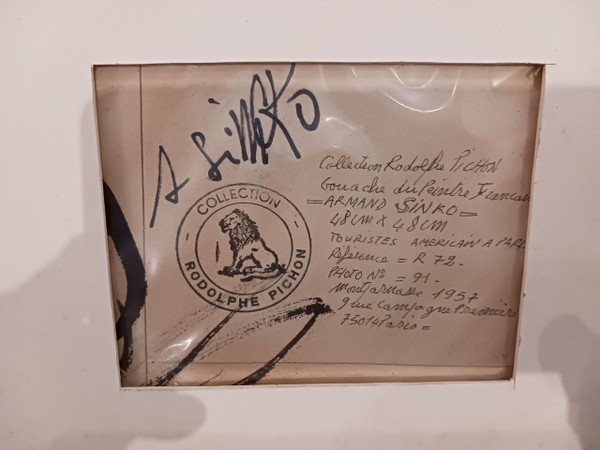 A SiNKO
COLLECTION
RODOLPHE PICHON
Collection Rodolphe PICHON
Gouache du Peintre Francais
=ARMAND SINKO=
48CM X 48CM
TOURISTES AMERICAIN A PARI
Référence = R 72-
PHOTO Nº = 91-
Montparnasse 1957
9 rue Campagne Première
75014 Paris=